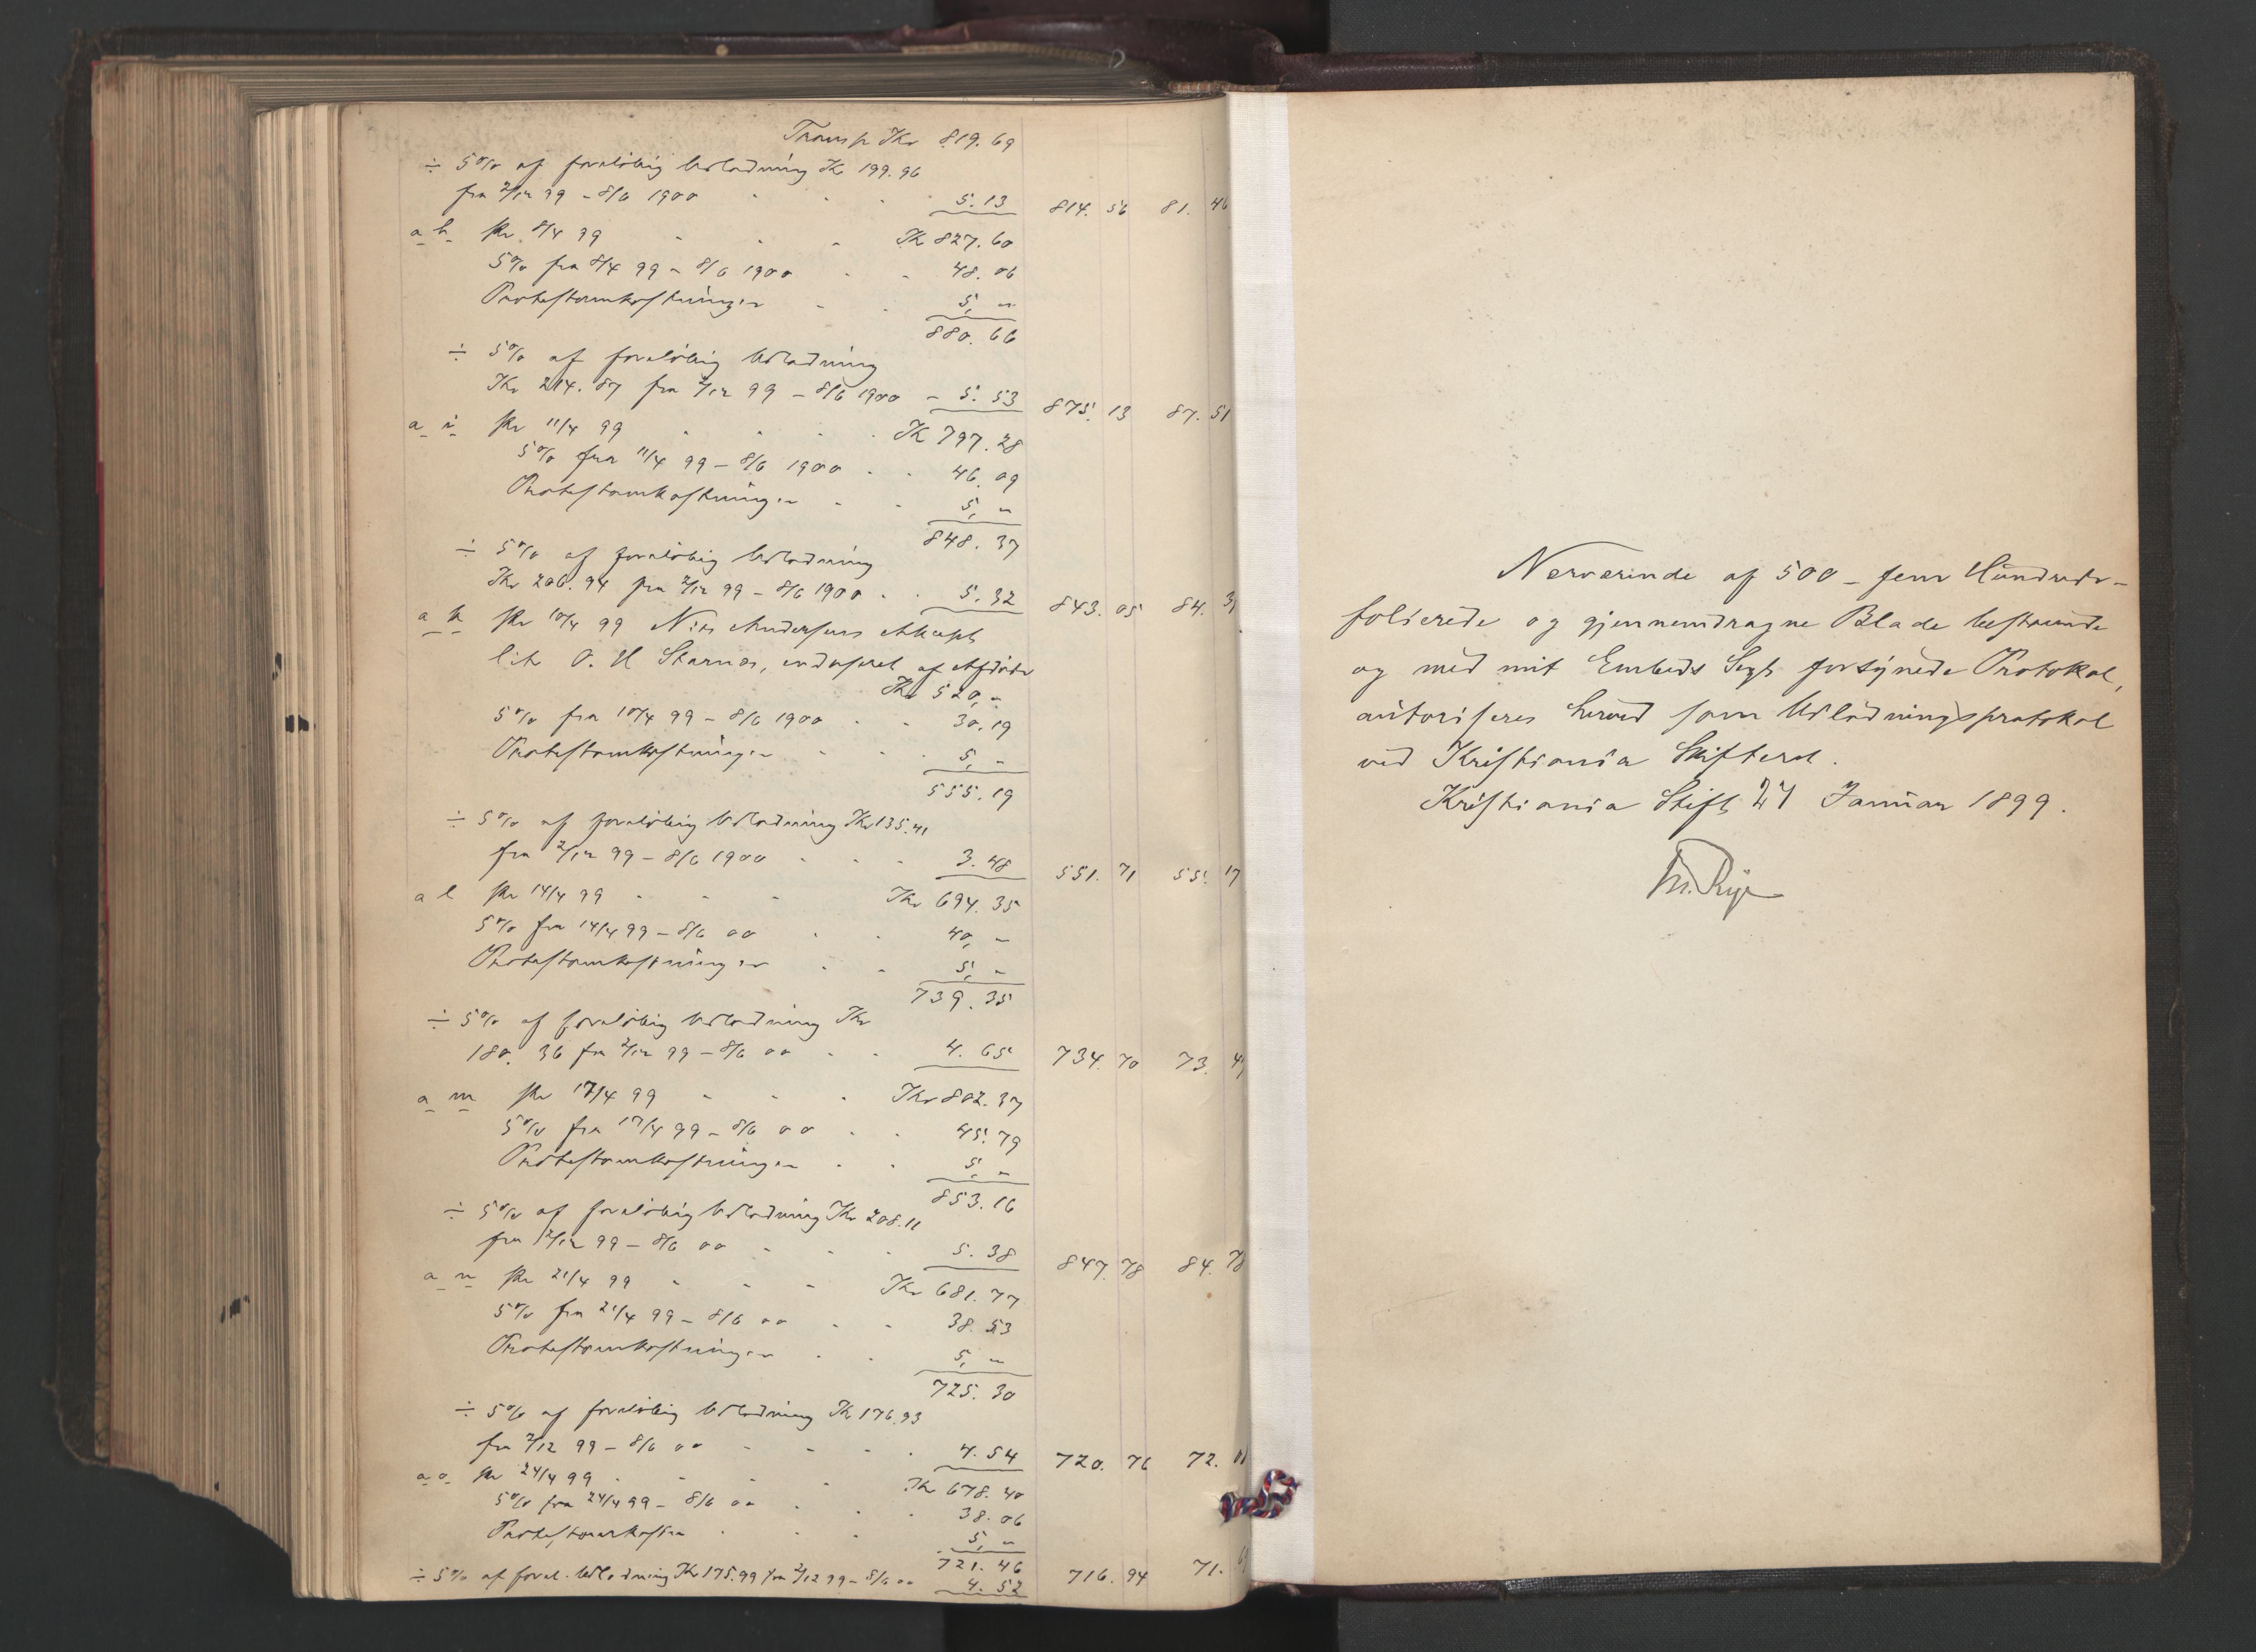 Transp Kr 819.69
÷ 5% af foreløbig Udlodning Kr 199.96
fra 2/12 99 – 8/6 1900 5.13 814.56 81.46
a h pr 8/4 99 Kr 827.60
5% fra 8/4 99 – 8/6 1900 48.06
Protestomkostninger 5,„
880.66
÷ 5% af foreløbig Udlodning
Kr 214.87 fra 2/12 99 – 8/6 1900 – 5.53 875.13 87.51
a i pr 11/4 99 Kr 797.28
5% fra 11/4 99 – 8/6 1900 46.09
Protestomkostninger 5,„
848.37
÷ 5% af foreløbig Udlodning
Kr 206.94 fra 2/12 99 – 8/6 1900 5.32 843.05 84.31
a k pr 10/4 99 Nils Andersens Akcept
til O. H. , endosseret af Afdøde
Kr 520,„
5% fra 10/4 99 – 8/6 1900 30.19
Protestomkostninger 5,„
555.19
÷ 5% af foreløbig Udlodning Kr 135.41
fra 2/12 99 – 8/6 1900 3.48 551.71 55.17
a l pr 14/4 99 Kr 694.35
5% fra 14/4 99 – 8/6 00 40,„
Protestomkostninger 5,„
739.35
÷ 5% af foreløbig Udlodning Kr
180.36 fra 2/12 99 – 8/6 00 4.65 734.70 73.47
a m pr 17/4 99 Kr 802.37
5% fra 17/4 99 – 8/6 00 45.79
Protestomkostninger 5,„
853.16
÷ 5% af foreløbig Udlodning Kr 208.11
fra 2/12 99 – 8/6 00 5.38 847.78 84.78
a n pr 21/4 99 Kr 681.77
5% fra 21/4 99 – 8/6 00 38.53
Protestomkostninger 5,„
725.30
÷ 5% af foreløbig Udlodning Kr 176.93
fra 2/12 99 – 8/6 00 4.54 720.76 72.08
a o pr 24/4 99 Kr 678.40
5% fra 24/4 99 – 8/6 00 38.06
Protestomkostn 5,„
721.46
÷ 5% af forel. Udlodning Kr 175.99 fra 2/12 99 – 8/6 00 4.52 716.94 71.69
Nærværende af 500 – fem Hundrede –
folierede og gjennemdragne Blade bestaaende
og med mit Embeds Segl forsynede Protokol,
autoriseres herved som Udlodningsprotokol
ved Kristiania Skifteret.
Kristiania Stift 27 Januar 1899.
M. Rye